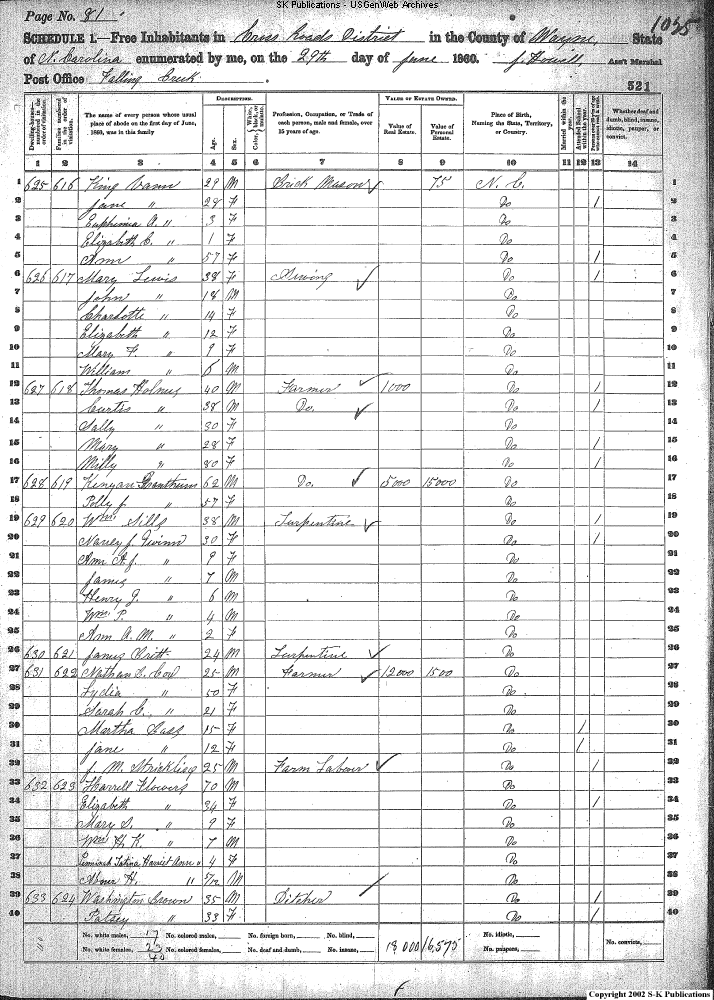 SK Publications - USGenWeb Archives
Page No. 81
1035
SCHEDULE 1.—Free Inhabitants in Cross Roads District in the County of Wayne State
of N. Carolina enumerated by me, on the 29th day of June 1860. J. Howell Ass't Marshal
Post Office Falling Creek.
521
Dwelling-houses—numbered in the order of visitation.
Families numbered in the order of visitation.
The name of every person whose usual place of abode on the first day of June, 1860, was in this family
DESCRIPTION.
Age.
Sex.
Color, White, black, or mulatto.
Profession, Occupation, or Trade of each person, male and female, over 15 years of age.
VALUE OF ESTATE OWNED.
Value of Real Estate.
Value of Personal Estate.
Place of Birth, Naming the State, Territory, or Country.
Married within the year.
Whether deaf and dumb, blind, insane, idiotic, pauper, or convict.
1 2 3 4 5 6 7 8 9 10 11 12 13 14
1 625 616 King Vann 29 M Brick Mason 75 N. C. 1
2 Jane " 28 F Do / 2
3 Euphimia A. " 3 F Do 3
4 Elizabeth C. " 1 F Do 4
5 Ann " 57 F Do / 5
6 626 617 Mary Lewis 38 F Sewing Do / 6
7 John " 18 M Do 7
8 Charlotte " 14 F Do 8
9 Elizabeth " 12 F Do 9
10 Mary F. " 9 F Do 10
11 William " 6 M Do 11
12 627 618 Thomas Holmes 40 M Farmer 1000 Do / 12
13 Curtis " 38 M Do. Do / 13
14 Sally " 30 F Do 14
15 Mary " 28 F Do / 15
16 Milly " 80 F Do / 16
17 628 619 Kenyan Grantham 62 M Do. 5000 15000 Do 17
18 Polly J. " 57 F Do 18
19 629 620 Wm. Sills 38 M Turpentine Do / 19
20 Nancy J. Gwinn 30 F Do / 20
21 Ann A. J. " 9 F Do 21
22 James " 7 M Do 22
23 Henry G. " 6 M Do 23
24 Wm. P. " 4 M Do 24
25 Ann A. M. " 2 F Do 25
26 630 621 James Britt 24 M Turpentine Do 26
27 631 622 Nathan L. Cox 25 M Farmer 12000 1500 Do 27
28 Lydia " 50 F Do 28
29 Sarah C. " 21 F Do 29
30 Martha Cass 15 F Do / 30
31 Jane " 12 F Do / 31
32 J. M. Strickling 25 M Farm Labour Do / 32
33 632 623 Harrell Flowers 70 M Do 33
34 Elizabeth " 34 F Do / 34
35 Mary S. " 9 F Do 35
36 Wm. H. K. " 7 M Do 36
37 Harriet Ann " 4 F Do 37
38 Abner H. " 5/12 M Do 38
39 633 624 Washington Crown 35 M Ditcher Do / 39
40 Patsey " 33 F Do / 40
No. white males, 17 No. colored males, No. foreign born, No. blind, 18000 16,575 No. idiotic, No. convicts,
No. white females, 23 No. colored females, No. deaf and dumb, No. insane, No. paupers,
40
Copyright 2002 S-K Publications